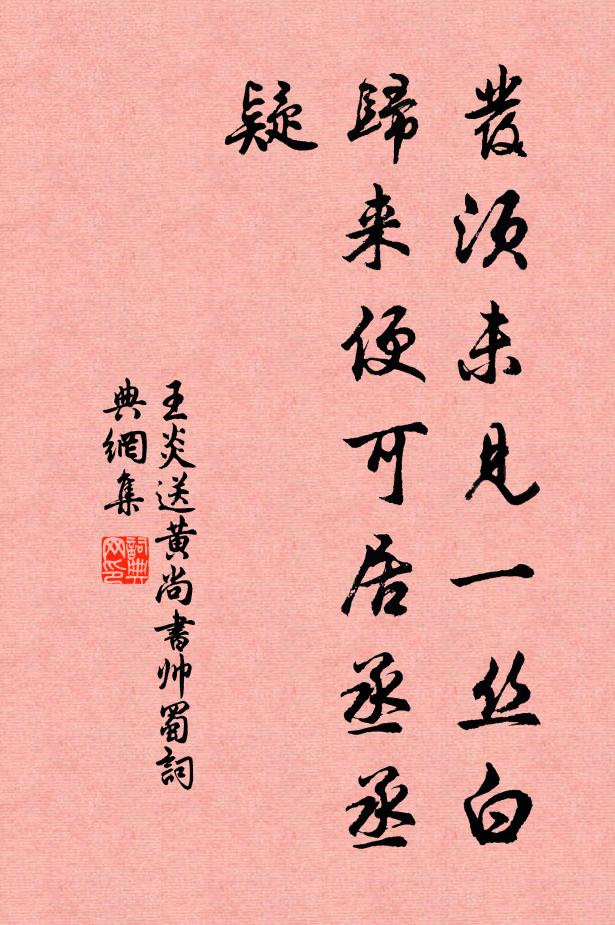 發須未見一丝白
歸来便可居丞丞
疑
王炎送黄尚書帅蜀詞
典網集
詞典
网印